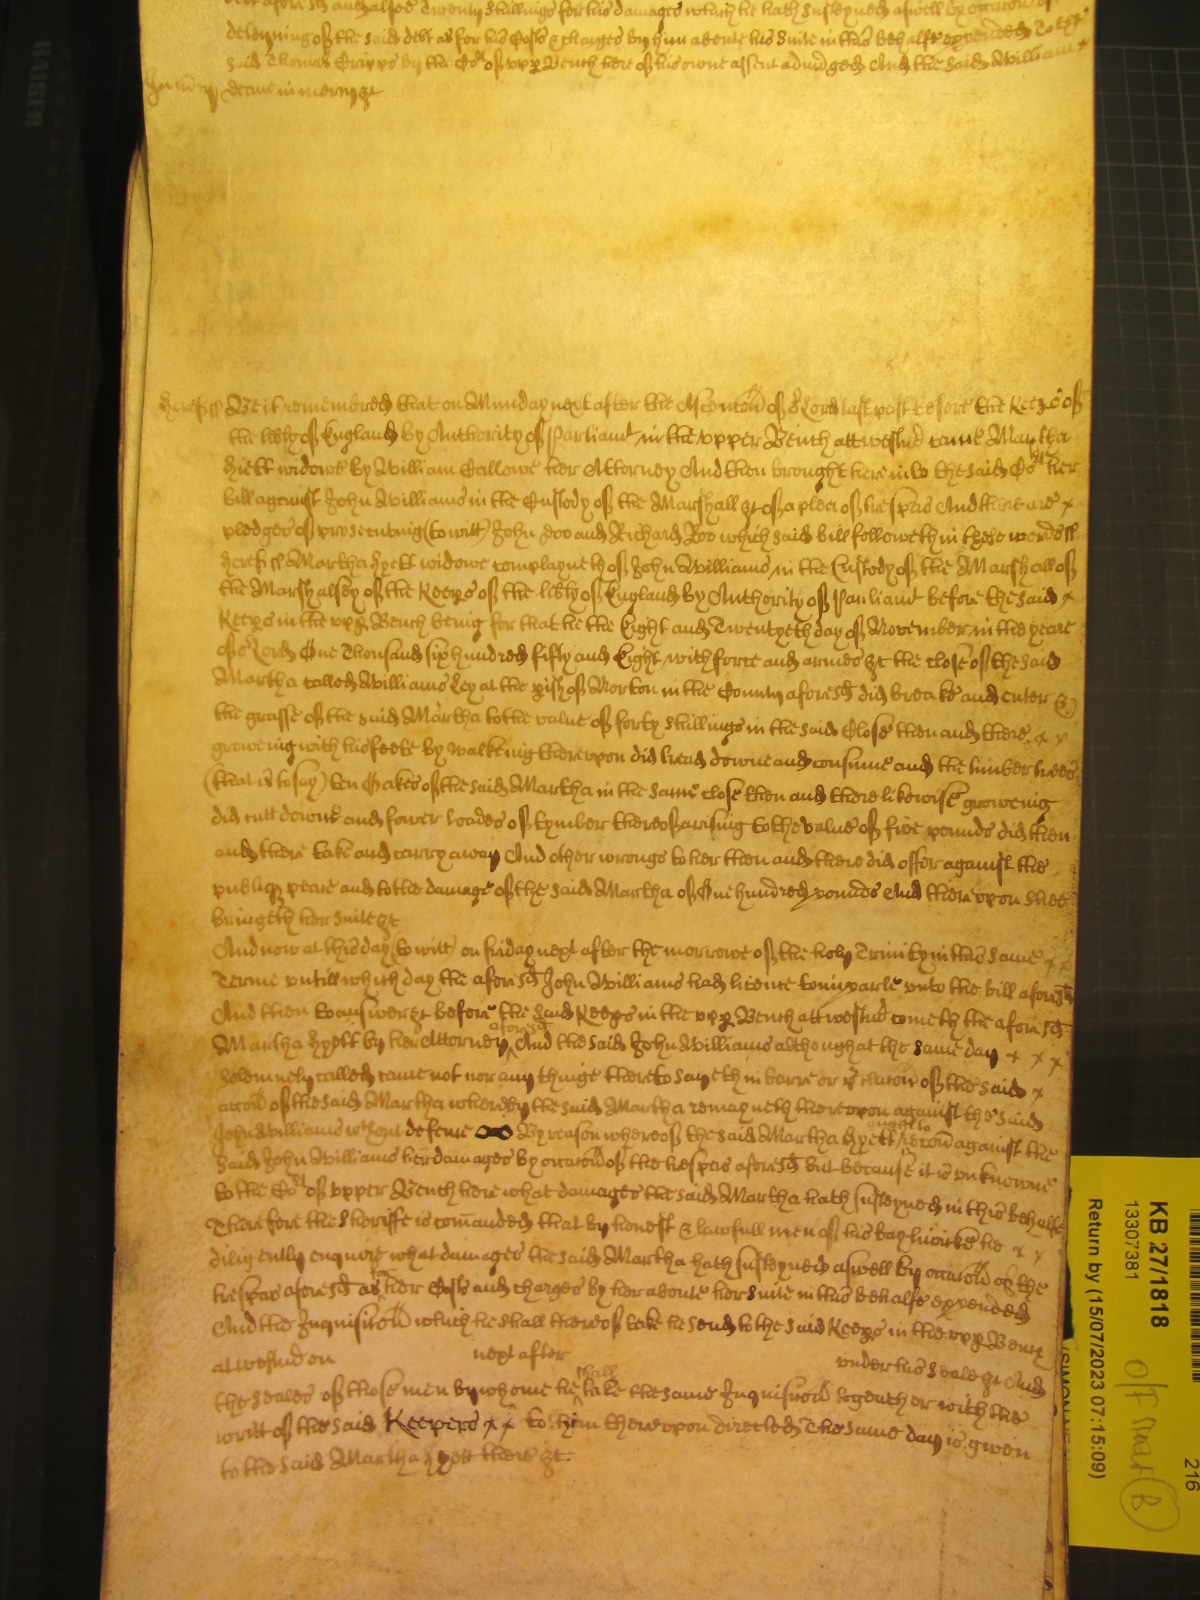 debt aforesd and alsoe Twenty Shillings for his damages which he hath susteyned aswell by occacon of
deteyning of the said debt as for his Costs & charges by him aboute his Suite in this behalfe expended to the
said Thomas by the Cort of vpp Bench here of his owne assent adiudged And the said William
In mercy &c
Heref ss Be it remembred that on Munday next after the Ascention of or Lord last past before the Keeps of
the libty of England by Authority of Parliamt in the vpper Bench att Westmr came Martha
Hyett widowe by William Callowe her Attorney And then brought here into the said Cort her
bill against John Williams in the Custody of the Marshall &c of a plea of trespas And there are x
pledges of prosecuting (to witt) John Doo and Richard Roo which said bill followeth in these words ss
Heref ss Martha Hyett widowe complayneth of John Williams in the Custody of the Marshall of
the Marshalsey of the Keeps of the libty of England by Authority of Parliamt before the said x
Keeps in the vpp Bench being for that he the Eight and Twentyeth day of November in the yeare
of or Lord One Thousand six hundred fifty and Eight with force and armes &c the close of the said
Martha called Williams Ley at the pish of Morton in the County aforesd did breake and enter &
the grasse of the said Martha to the value of forty shillings in the said Close then and there x x
groweing with his feete by walkeing therevpon did tread downe and consume and the timber trees
(that is to say) ten Oakes of the said Martha in the same close then and there likewise groweing
did cutt downe and fower loades of tymber thereof arising to the value of five pounds did then
and there take and carry away And other wrongs to her then and there did offer against the
publiq peace and to the damage of the said Martha of One hundred pounds And therevpon shee
bringeth her suite &c
And now at this day (to witt) on friday next after the morrowe of the holy Trinity in this same x x
Terme vntill which day the aforesd John Williams had licence to imparle vnto the bill aforesd
And then to answer &c before the said Keeps in the vpp Bench att Westmr cometh the aforesd
Martha Hyett by her Attorney aforesd And the said John Williams although at the same day x x x
solemnely called came not nor any thinge thereto sayeth in barre or pclucon of the said x
accon of the said Martha whereby the said Martha remayneth therevpon against the said
John Williams without defence By reason whereof the said Martha Hyett ought to recou against the
said John Williams her damages by occacon of the trespas aforesd but because it is vnknowne
to the Cort of vpper Bench here what damages the said Martha hath susteyned in this behalfe
Therefore the Sheriffe is comanded that by honest & lawfull men of his bayliwicke he x x
diligently enquire what damages the said Martha hath susteyned aswell by occacon of the
trespas aforesd as for her Costs and charges by her aboute her suite in this behalfe expended
And the Inquisicon which he shall thereof take he send to the said Keeps in the vpp Bench
at Westmr on next after under his Seale &c And
the Seales of those men by whome he shall take the same Inquisicon togeather with the
writt of the said Keepers x x to him therevpon directed The same day is given
to the said Martha Hyett there &c.
KB 27/1818
13307381
Return by (15/07/2023 07:15:09)
216